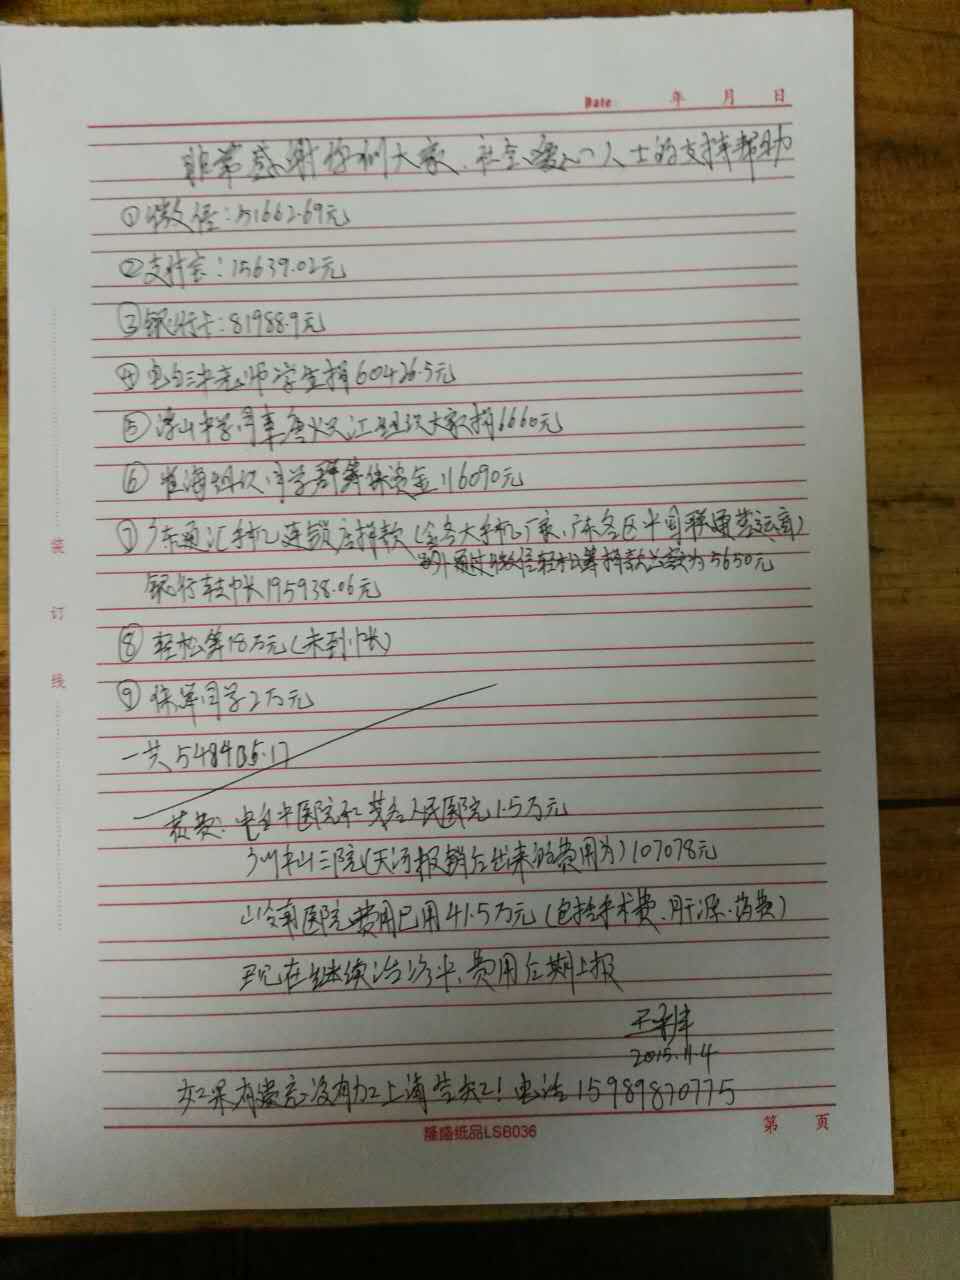 Date 年 月 日
非常感谢你们大家、社会爱心人士的支持帮助
①微信:51662.69元
②支付宝:15639.02元
③银行卡:81988.9元
④电白三中老师学生捐60426.5元
⑤ 中学同事 组织大家捐6660元
⑥ 海组织同学群筹集资金116090元
⑦广东通汇手机连锁店捐款(含各大手机厂家、广东各区中国联通营运商)
另外通过微信轻松筹捐款总数为5650元
银行转帐195938.06元
⑧轻松筹18万元(未到帐)
⑨ 同学2万元
一共5484 5.17
花费:电白中医院和茂名人民医院1.5万元
广州中山三院(天河报销后出来的费用为)107078元
岭南医院费用已用41.5万元(包括手术费、肝源、药费)
现在继续治疗中、费用后期上报
2015.11.4
如果有遗漏没有加上请告知!电话15989870775
装
订
线
隆盛纸品LSB036
第 页